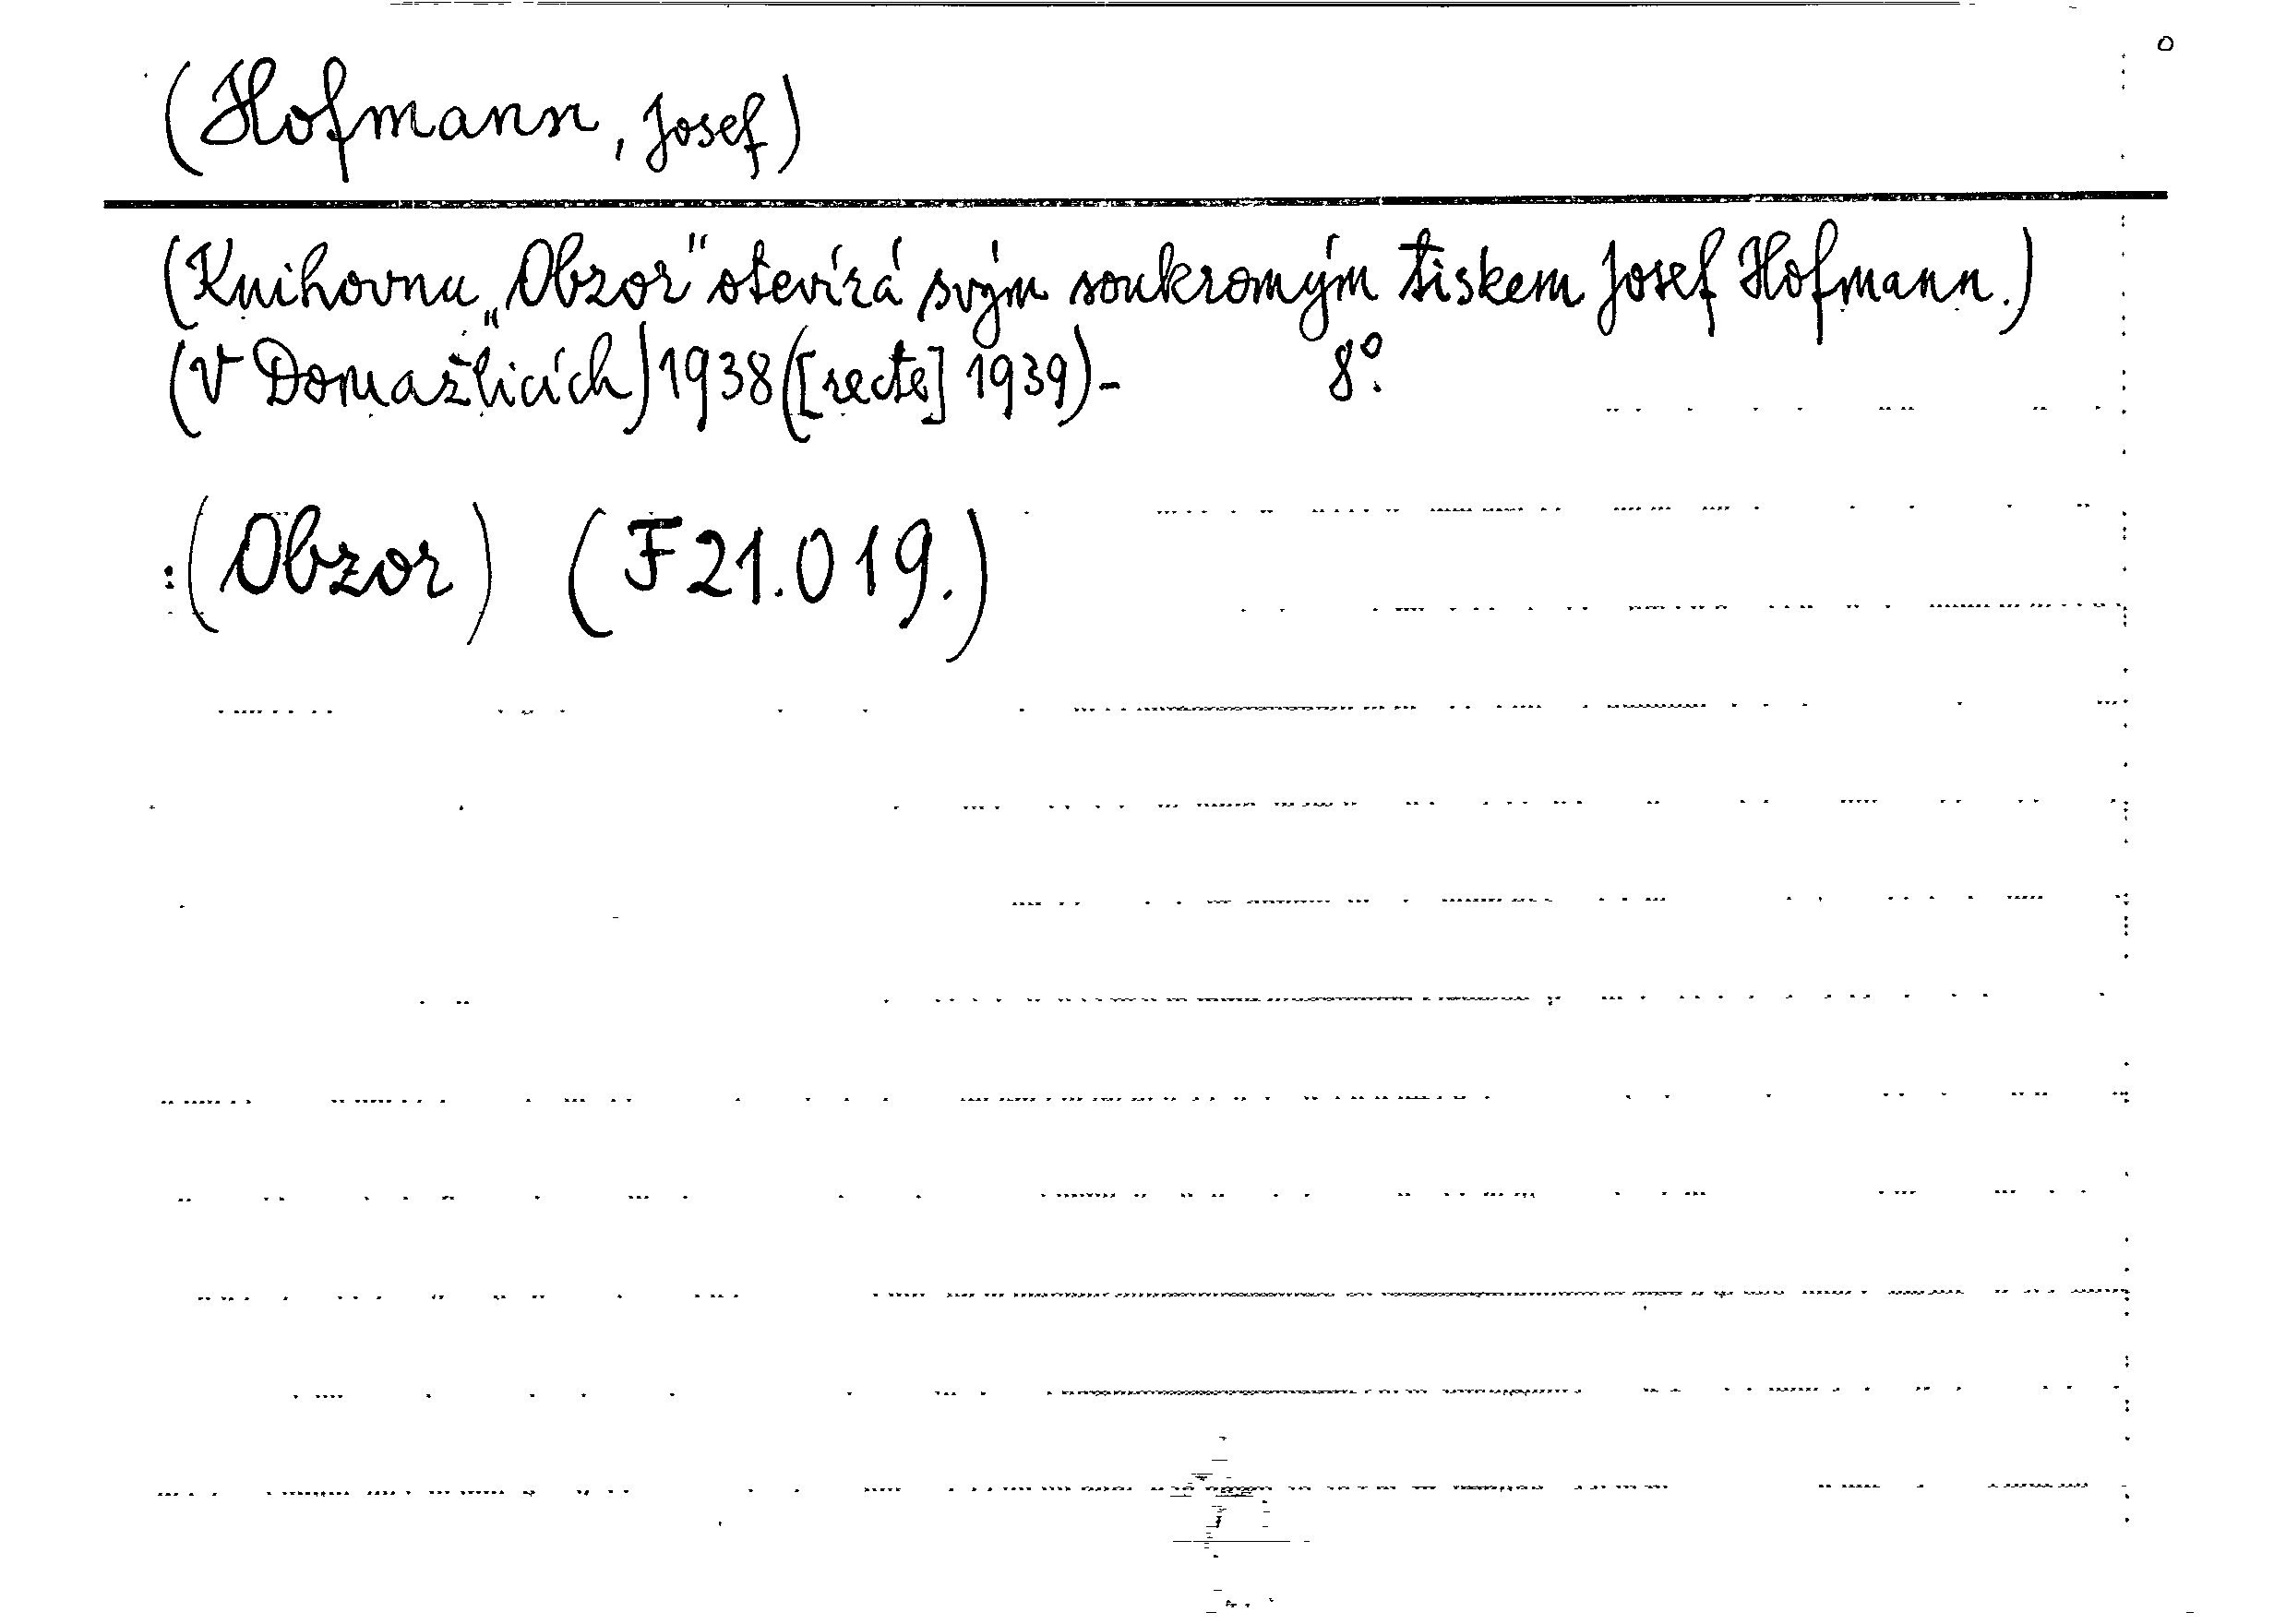 (Hofmann, Josef)
(Knihovnu „Obzor" otevírá svým soukromým tiskem Josef Hofmann.)
(V Domažlicích) 1938 ([recte] 1939)- 8°.
:(Obzor) (F 21.019.)